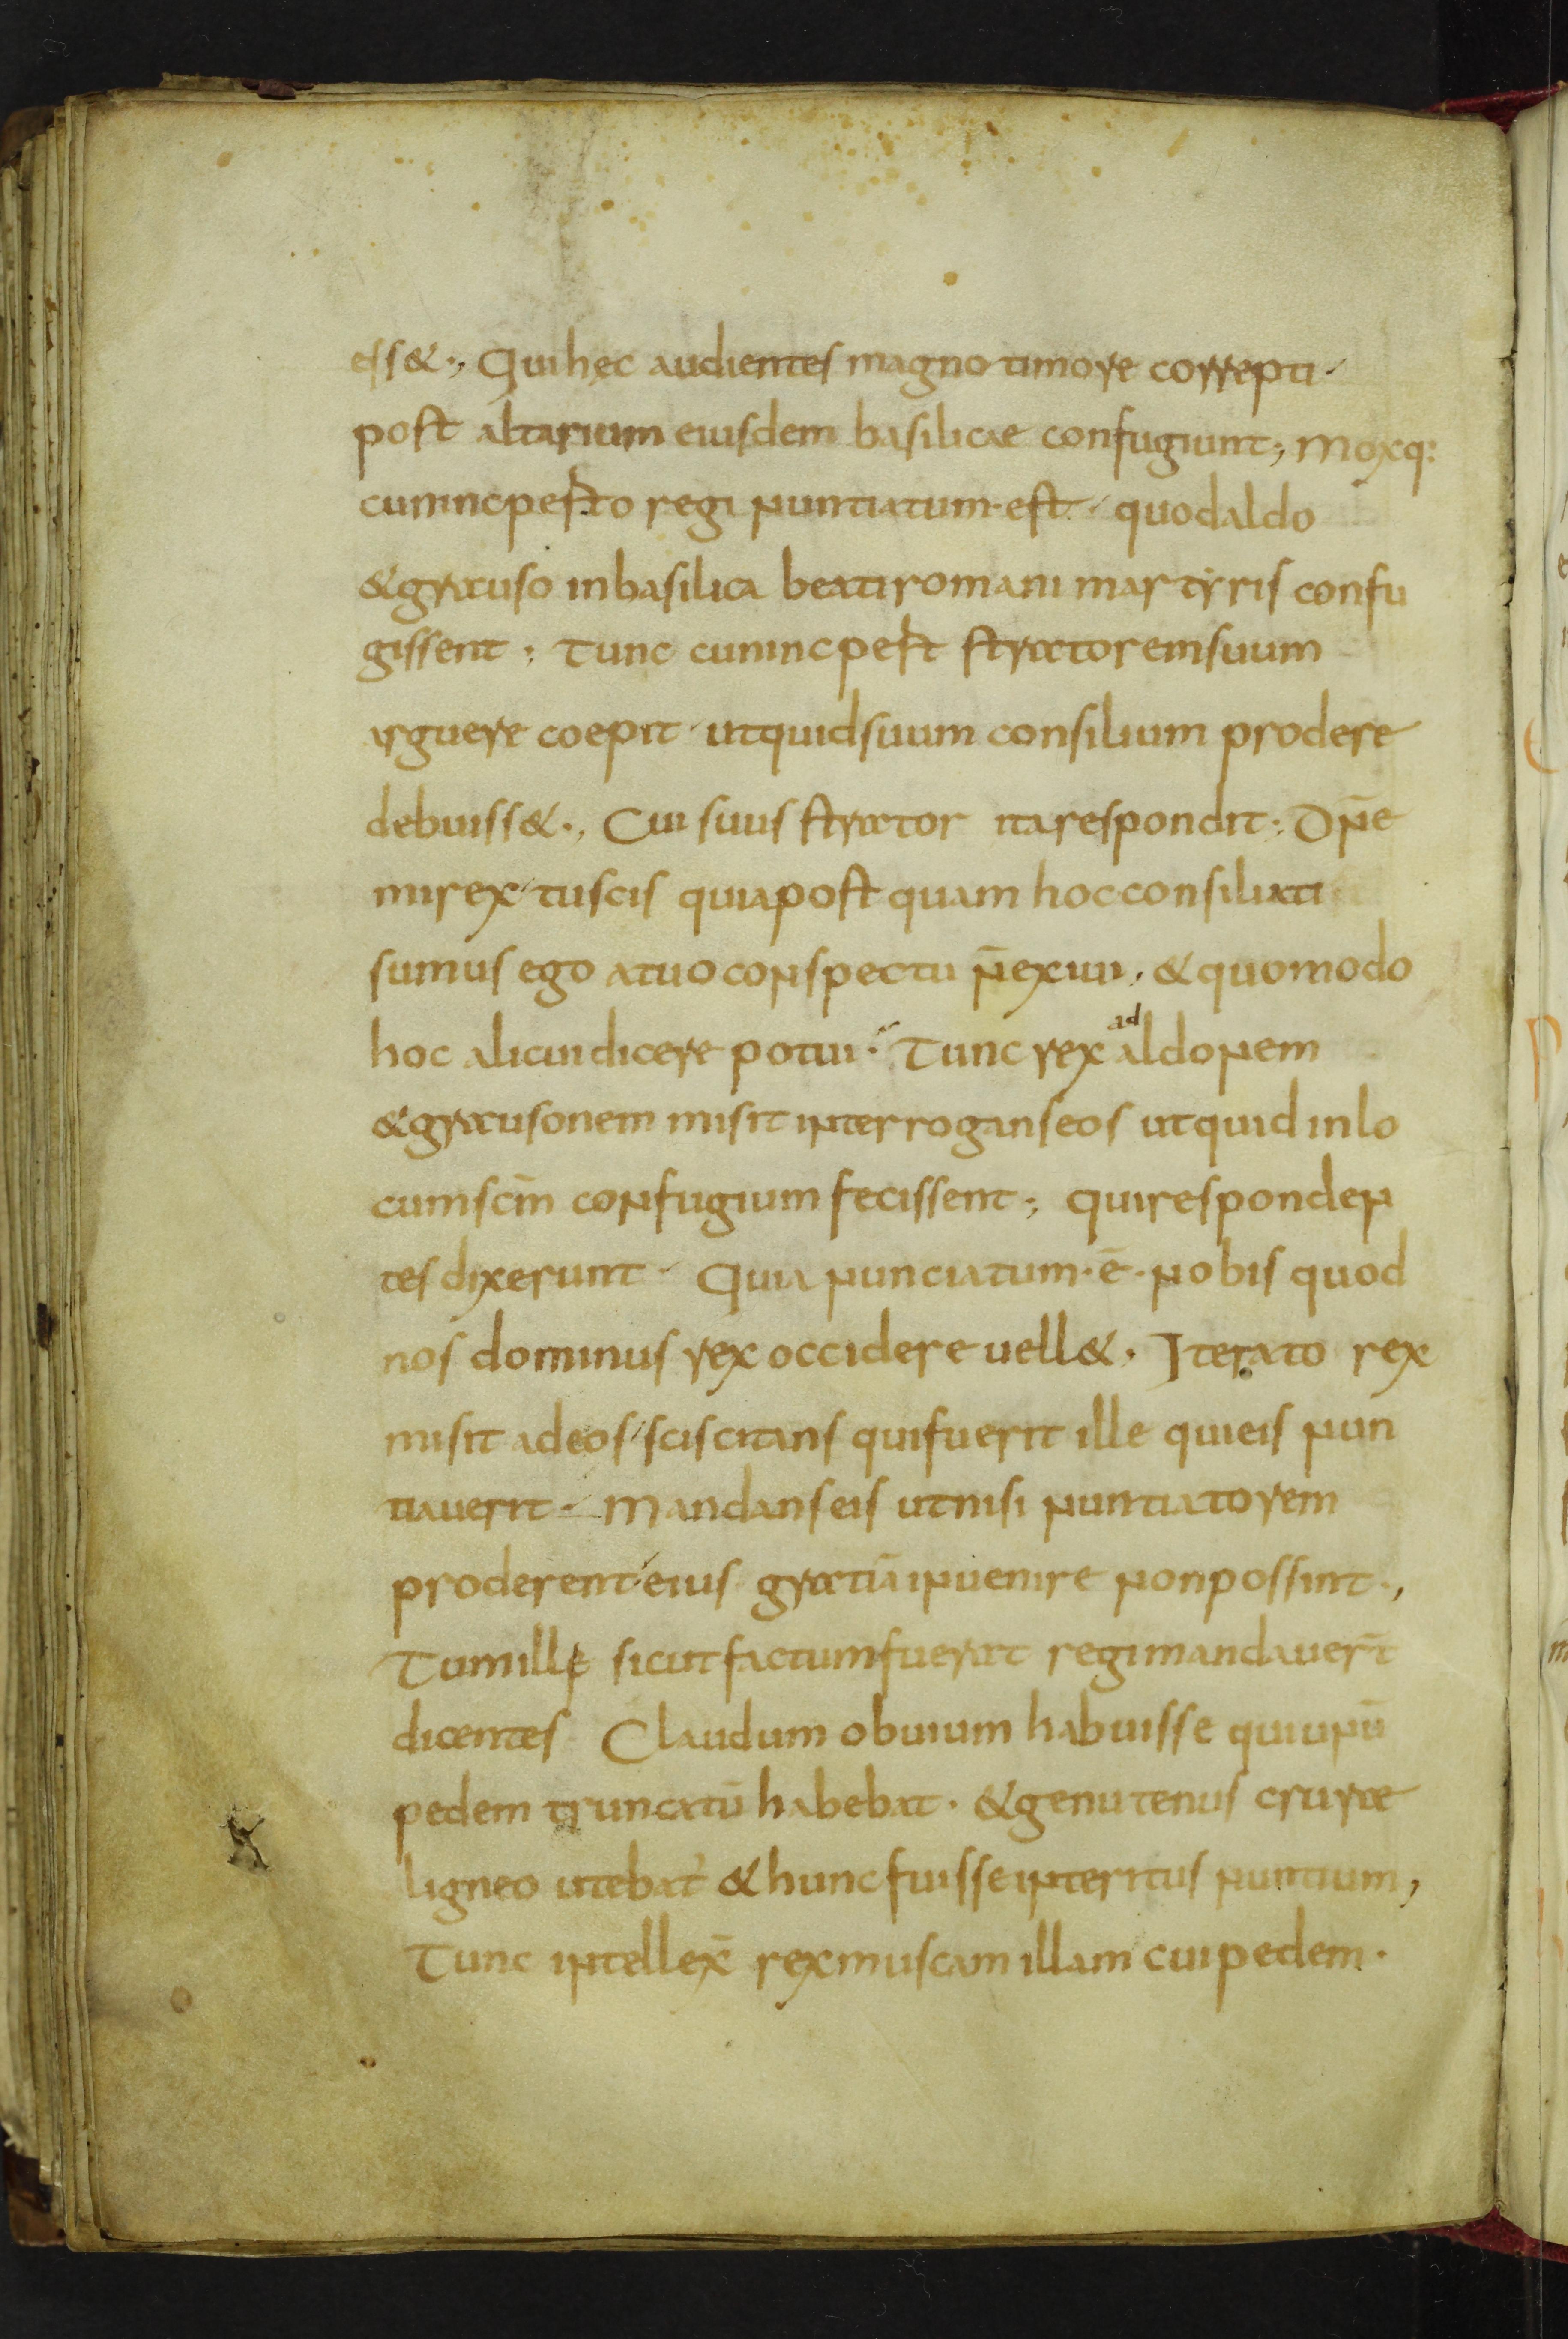 ess&., Qui hęc audientes magno timore correpti
post altarium eiusdem basilicae confugiunt; Moxq:
cunincpesto regi nuntiatum est quod aldo
& grauso in basilica beati romani martyris confu
gissent; Tunc cunincpest stratorem suum
arguere coepit ut quid suum consilium prodere
debuiss&., Cui suus strator ita respondit; Dn̄e
mi rex tu scis quia postquam hoc consiliati
sumus ego a tuo conspectu n̄ exiui, & quomodo
hoc alicui dicere potui. Tunc rex ad aldonem
& grausonem misit interrogans eos ut quid in lo
cum sc̄m confugium fecissent; qui responden
tes dixerunt Quia nunciatum .ē. nobis quod
nos dominus rex occidere uell&. Iterato rex
misit ad eos sciscitans qui fuerit ille qui eis nun
tiauerit. Mandans eis ut nisi nuntiatorem
proderent eius gratiā inuenire non possint.,
Tum ille sicut factum fuerat regi mandauer̄t
dicentes Claudum obuium habuisse qui unū
pedem truncatū habebat. & genu tenus crure
ligneo utebat᷑ & hunc fuisse interitus nuntium,
Tunc intellex̄ rex muscam illam cui pedem.